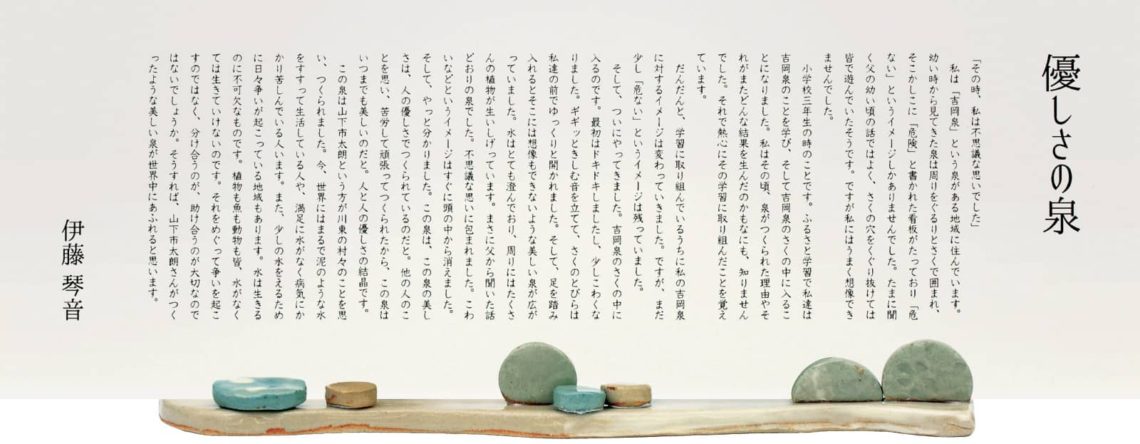 優しさの泉
「その時、私は不思議な思いでした」
　私は「吉岡泉」という泉がある地域に住んでいます。
幼い時から見てきた泉は周りをぐるりとさくで囲まれ、
そこかしこに「危険」と書かれた看板がたっており「危
ない」というイメージしかありませんでした。たまに聞
く父の幼い頃の話ではよく、さくの穴をくぐり抜けては
皆で遊んでいたそうです。ですが私にはうまく想像でき
ませんでした。
　小学校三年生の時のことです。ふるさと学習で私達は
吉岡泉のことを学び、そして吉岡泉のさくの中に入るこ
とになりました。私はその頃、泉がつくられた理由やそ
れがまたどんな結果を生んだのかもなにも、知りません
でした。それで熱心にその学習に取り組んだことを覚え
ています。
　だんだんと、学習に取り組んでいるうちに私の吉岡泉
に対するイメージは変わっていきました。ですが、まだ
少し「危ない」というイメージは残っていました。
　そして、ついにやってきました。吉岡泉のさくの中に
入るのです。最初はドキドキしましたし、少しこわくな
りました。ギギッときしむ音を立てて、さくのとびらは
私達の前でゆっくりと開かれました。そして、足を踏み
入れるとそこには想像もできないような美しい泉が広が
っていました。水はとても澄んでおり、周りにはたくさ
んの植物が生いしげっています。まさに父から聞いた話
どおりの泉でした。不思議な思いに包まれました。こわ
いなどというイメージはすぐに頭の中から消えました。
そして、やっと分かりました。この泉は、この泉の美し
さは、人の優しさでつくられているのだと。他の人のこ
とを思い、苦労して頑張ってつくられたから、この泉は
いつまでも美しいのだと。人と人の優しさの結晶です。
　この泉は山下市太朗という方が川東の村々のことを思
い、つくられました。今、世界にはまるで泥のような水
をすすって生活している人や、満足に水がなく病気にか
かり苦しんでいる人います。また、少しの水をえるため
に日々争いが起こっている地域もあります。水は生きる
のに不可欠なものです。植物も魚も動物も皆、水がなく
ては生きていけないのです。それをめぐって争いを起こ
すのではなく、分け合うのが、助け合うのが大切なので
はないでしょうか。そうすれば、山下市太朗さんがつく
ったような美しい泉が世界中にあふれると思います。
伊藤 琴音